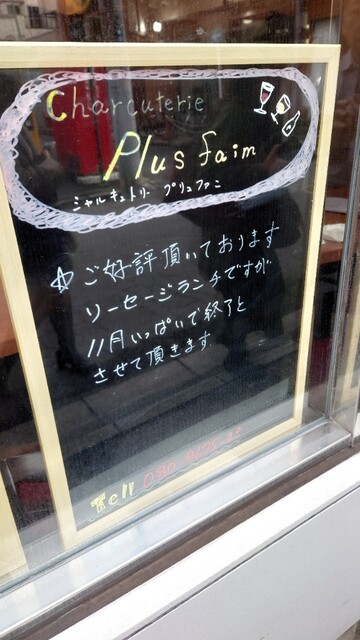 Charcuterie
Plus faim
シャルキュトリー プリュファン
☆ご好評頂いております
ソーセージランチですが
11月いっぱいで終了と
させて頂きます
Tell 080